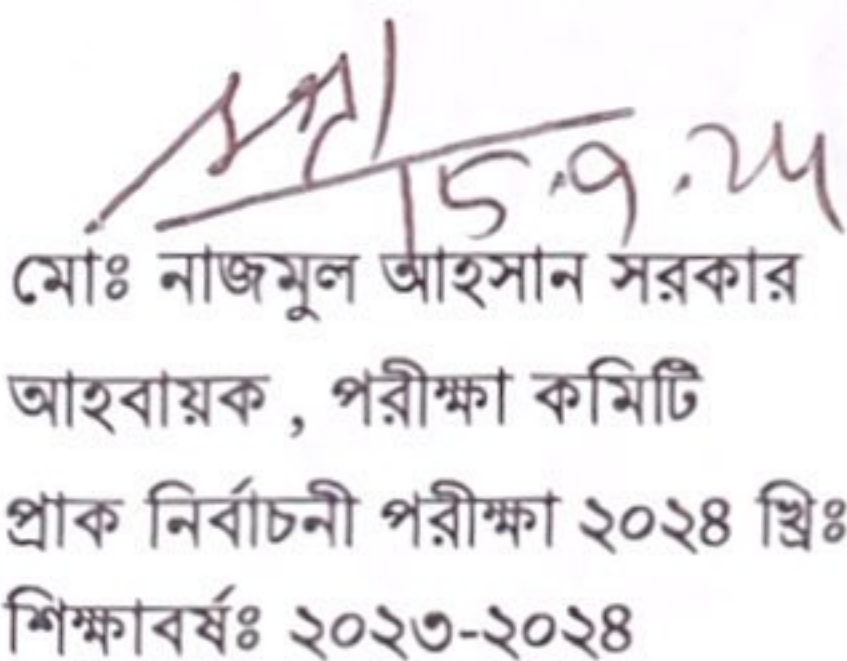 15.9.24
মোঃ নাজমুল আহসান সরকার
আহবায়ক , পরীক্ষা কমিটি
প্রাক নির্বাচনী পরীক্ষা ২০২৪ খ্রিঃ
শিক্ষাবর্ষঃ ২০২৩-২০২৪